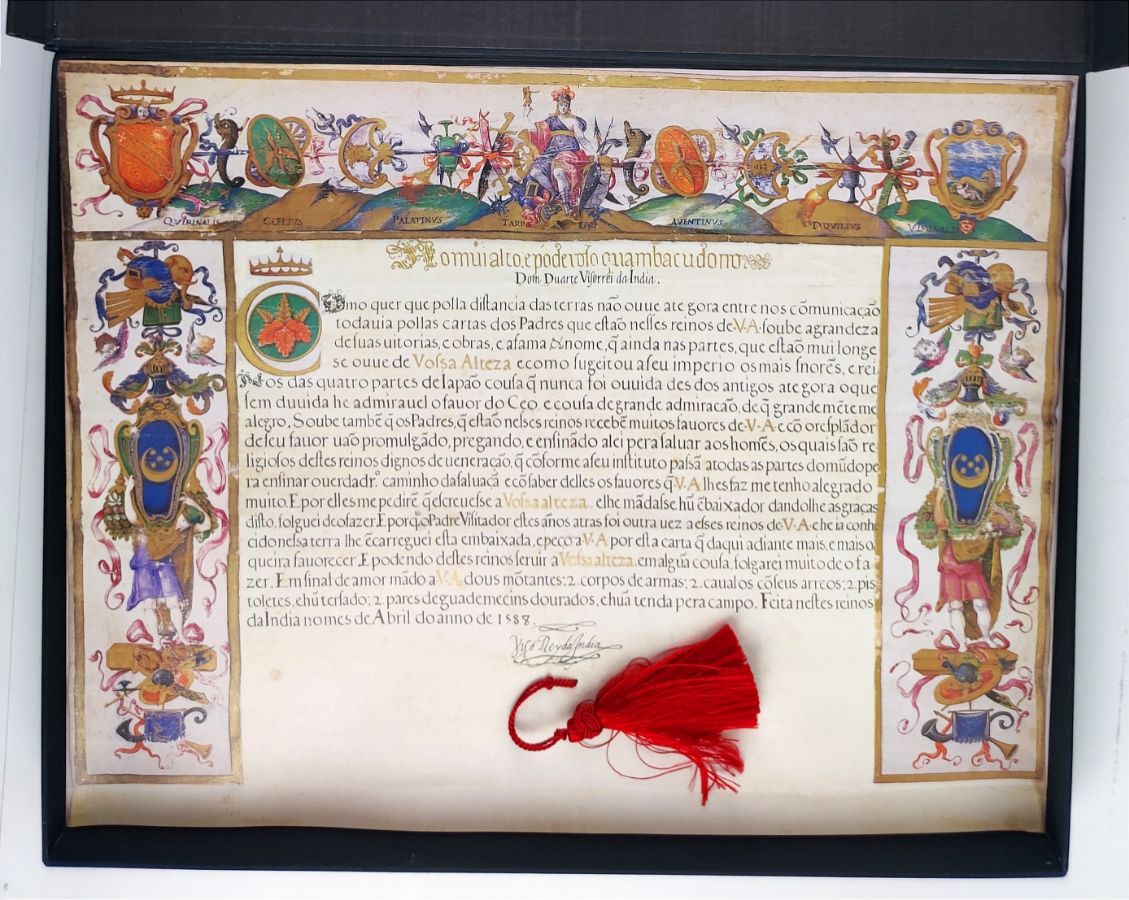 QVIRINALIS CŒLIVS PALATINVS TARP EIVS AVENTINVS EXQVILIVS VIMINALIS
Ao mui alto, e poderoso cuambacudono
Dom Duarte Visorrei da India.
Como quer que polla distancia das terras não ouue ate gora entre nos cõmunicação
todauia pollas cartas dos Padres que estaõ nesses reinos de V.A. soube a grandeza
de suas uitorias, e obras, e a fama & nome, q̃ ainda nas partes, que estaõ mui longe
se ouue de Vossa Alteza e como sugeitou a seu imperio os mais sñorẽs, e rei
Nos das quatro partes de Iapaõ cousa q̃ nunca foi ouuida des dos antigos ate gora o que
sem duuida he admirauel o fauor do Ceo, e cousa de grande admiracaõ, de q̃ grandemẽte me
alegro. Soube tambẽ q̃ os Padres, q̃ estaõ nesses reinos recebẽ muitos fauores de V.A. e cõ o resplãdor
de seu fauor uaõ promulgãdo, pregando, e ensinãdo a lei pera saluar aos homẽs, os quais saõ re
ligiosos destes reinos dignos de ueneração, q̃ cõforme a seu instituto passã a todas as partes do mũdo pe
ra ensinar o uerdadrº caminho da saluaçã e cõ saber delles os fauores q̃ V.A lhes faz me tenho alegrado
muito. E por elles me pedirẽ q̃ escreuesse a Vossa alteza. e lhe mãdasse hũ ẽbaixador dandolhe as graças
disto, folguei de o fazer. E porq̃ o Padre Visitador estes años atras foi outra uez a esses reinos de V.A. e he ia conhe
cido nessa terra lhe ẽcarreguei esta embaixada, e peço a V.A por esta carta q̃ daqui adiante mais, e mais o
queira fauorecer. E podendo destes reinos seruir a Vossa alteza. em algũa cousa, folgarei muito de o fa
zer. Em sinal de amor mãdo a V.A. dous mõtantes; 2. corpos de armas; 2. caualos cõ seus arreos; 2 pis
toletes, e hũ tersado; 2 pares de guademecins dourados, e hũa tenda pera campo. Feita nestes reinos
da India no mes de Abril do anno de 1588.
Viso Rey da India